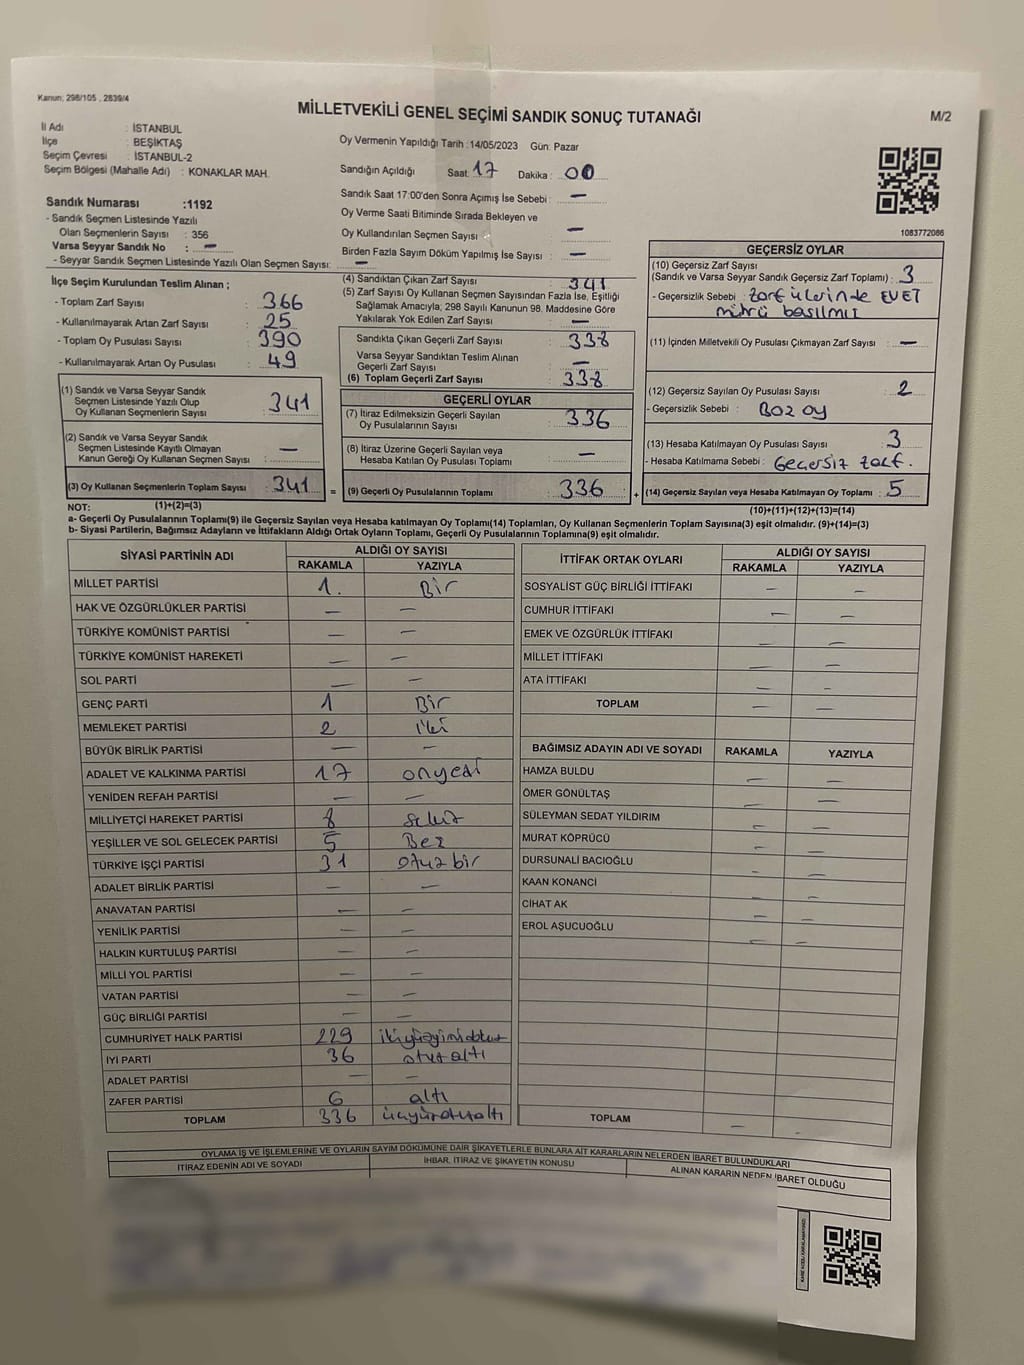 Kanun; 298/105 , 2839/4
MİLLETVEKİLİ GENEL SEÇİMİ SANDIK SONUÇ TUTANAĞI
M/2
İl Adı : İSTANBUL
İlçe : BEŞİKTAŞ
Seçim Çevresi : İSTANBUL-2
Seçim Bölgesi (Mahalle Adı) : KONAKLAR MAH.
Oy Vermenin Yapıldığı Tarih :14/05/2023 Gün: Pazar
Sandığın Açıldığı Saat: 17 Dakika : 00
Sandık Saat 17:00'den Sonra Açımış İse Sebebi : —
Oy Verme Saati Bitiminde Sırada Bekleyen ve
Oy Kullandırılan Seçmen Sayısı : —
Birden Fazla Sayım Döküm Yapılmış İse Sayısı : —
1083772086
Sandık Numarası :1192
- Sandık Seçmen Listesinde Yazılı
Olan Seçmenlerin Sayısı : 356
Varsa Seyyar Sandık No : —
- Seyyar Sandık Seçmen Listesinde Yazılı Olan Seçmen Sayısı: —
İlçe Seçim Kurulundan Teslim Alınan ;
- Toplam Zarf Sayısı : 366
- Kullanılmayarak Artan Zarf Sayısı : 25
- Toplam Oy Pusulası Sayısı : 390
- Kullanılmayarak Artan Oy Pusulası : 49
(1) Sandık ve Varsa Seyyar Sandık
Seçmen Listesinde Yazılı Olup
Oy Kullanan Seçmenlerin Sayısı : 341
(2) Sandık ve Varsa Seyyar Sandık
Seçmen Listesinde Kayıtlı Olmayan
Kanun Gereği Oy Kullanan Seçmen Sayısı : —
(3) Oy Kullanan Seçmenlerin Toplam Sayısı : 341
(1)+(2)=(3)
(4) Sandıktan Çıkan Zarf Sayısı : 341
(5) Zarf Sayısı Oy Kullanan Seçmen Sayısından Fazla İse, Eşitliği
Sağlamak Amacıyla, 298 Sayılı Kanunun 98. Maddesine Göre
Yakılarak Yok Edilen Zarf Sayısı : —
Sandıkta Çıkan Geçerli Zarf Sayısı : 338
Varsa Seyyar Sandıktan Teslim Alınan
Geçerli Zarf Sayısı : —
(6) Toplam Geçerli Zarf Sayısı : 338
GEÇERLİ OYLAR
(7) İtiraz Edilmeksizin Geçerli Sayılan
Oy Pusulalarının Sayısı : 336
(8) İtiraz Üzerine Geçerli Sayılan veya
Hesaba Katılan Oy Pusulası Toplamı : —
= (9) Geçerli Oy Pusulalarının Toplamı : 336
GEÇERSİZ OYLAR
(10) Geçersiz Zarf Sayısı
(Sandık ve Varsa Seyyar Sandık Geçersiz Zarf Toplamı) : 3
- Geçersizlik Sebebi : Zarf üzerinde EVET
mührü basılmış
(11) İçinden Milletvekili Oy Pusulası Çıkmayan Zarf Sayısı : —
(12) Geçersiz Sayılan Oy Pusulası Sayısı : 2
- Geçersizlik Sebebi : Boz oy
(13) Hesaba Katılmayan Oy Pusulası Sayısı : 3
- Hesaba Katılmama Sebebi : Geçersiz zarf.
+ (14) Geçersiz Sayılan veya Hesaba Katılmayan Oy Toplamı : 5
(10)+(11)+(12)+(13)=(14)
NOT:
a- Geçerli Oy Pusulalarının Toplamı(9) ile Geçersiz Sayılan veya Hesaba katılmayan Oy Toplamı(14) Toplamları, Oy Kullanan Seçmenlerin Toplam Sayısına(3) eşit olmalıdır. (9)+(14)=(3)
b- Siyasi Partilerin, Bağımsız Adayların ve İttifakların Aldığı Ortak Oyların Toplamı, Geçerli Oy Pusulalarının Toplamına(9) eşit olmalıdır.
SİYASİ PARTİNİN ADI ALDIĞI OY SAYISI
RAKAMLA YAZIYLA
MİLLET PARTİSİ 1. Bir
HAK VE ÖZGÜRLÜKLER PARTİSİ — —
TÜRKİYE KOMÜNİST PARTİSİ — —
TÜRKİYE KOMÜNİST HAREKETİ — —
SOL PARTİ — —
GENÇ PARTİ 1 Bir
MEMLEKET PARTİSİ 2 iki
BÜYÜK BİRLİK PARTİSİ — —
ADALET VE KALKINMA PARTİSİ 17 onyedi
YENİDEN REFAH PARTİSİ — —
MİLLİYETÇİ HAREKET PARTİSİ 8 sekiz
YEŞİLLER VE SOL GELECEK PARTİSİ 5 Beş
TÜRKİYE İŞÇİ PARTİSİ 31 otuz bir
ADALET BİRLİK PARTİSİ — —
ANAVATAN PARTİSİ — —
YENİLİK PARTİSİ — —
HALKIN KURTULUŞ PARTİSİ — —
MİLLİ YOL PARTİSİ — —
VATAN PARTİSİ — —
GÜÇ BİRLİĞİ PARTİSİ — —
CUMHURİYET HALK PARTİSİ 229 ikiyüzyirmidokuz
İYİ PARTİ 36 otuz altı
ADALET PARTİSİ — —
ZAFER PARTİSİ 6 altı
TOPLAM 336 üçyüzotuzaltı
İTTİFAK ORTAK OYLARI ALDIĞI OY SAYISI
RAKAMLA YAZIYLA
SOSYALİST GÜÇ BİRLİĞİ İTTİFAKI — —
CUMHUR İTTİFAKI — —
EMEK VE ÖZGÜRLÜK İTTİFAKI — —
MİLLET İTTİFAKI — —
ATA İTTİFAKI — —
TOPLAM — —
BAĞIMSIZ ADAYIN ADI VE SOYADI RAKAMLA YAZIYLA
HAMZA BULDU — —
ÖMER GÖNÜLTAŞ — —
SÜLEYMAN SEDAT YILDIRIM — —
MURAT KÖPRÜCÜ — —
DURSUNALİ BACIOĞLU — —
KAAN KONANCİ — —
CİHAT AK — —
EROL AŞUCUOĞLU — —
TOPLAM — —
OYLAMA İŞ VE İŞLEMLERİNE VE OYLARIN SAYIM DÖKÜMÜNE DAİR ŞİKAYETLERLE BUNLARA AİT KARARLARIN NELERDEN İBARET BULUNDUKLARI
İTİRAZ EDENİN ADI VE SOYADI İHBAR, İTİRAZ VE ŞİKAYETİN KONUSU ALINAN KARARIN NEDEN İBARET OLDUĞU